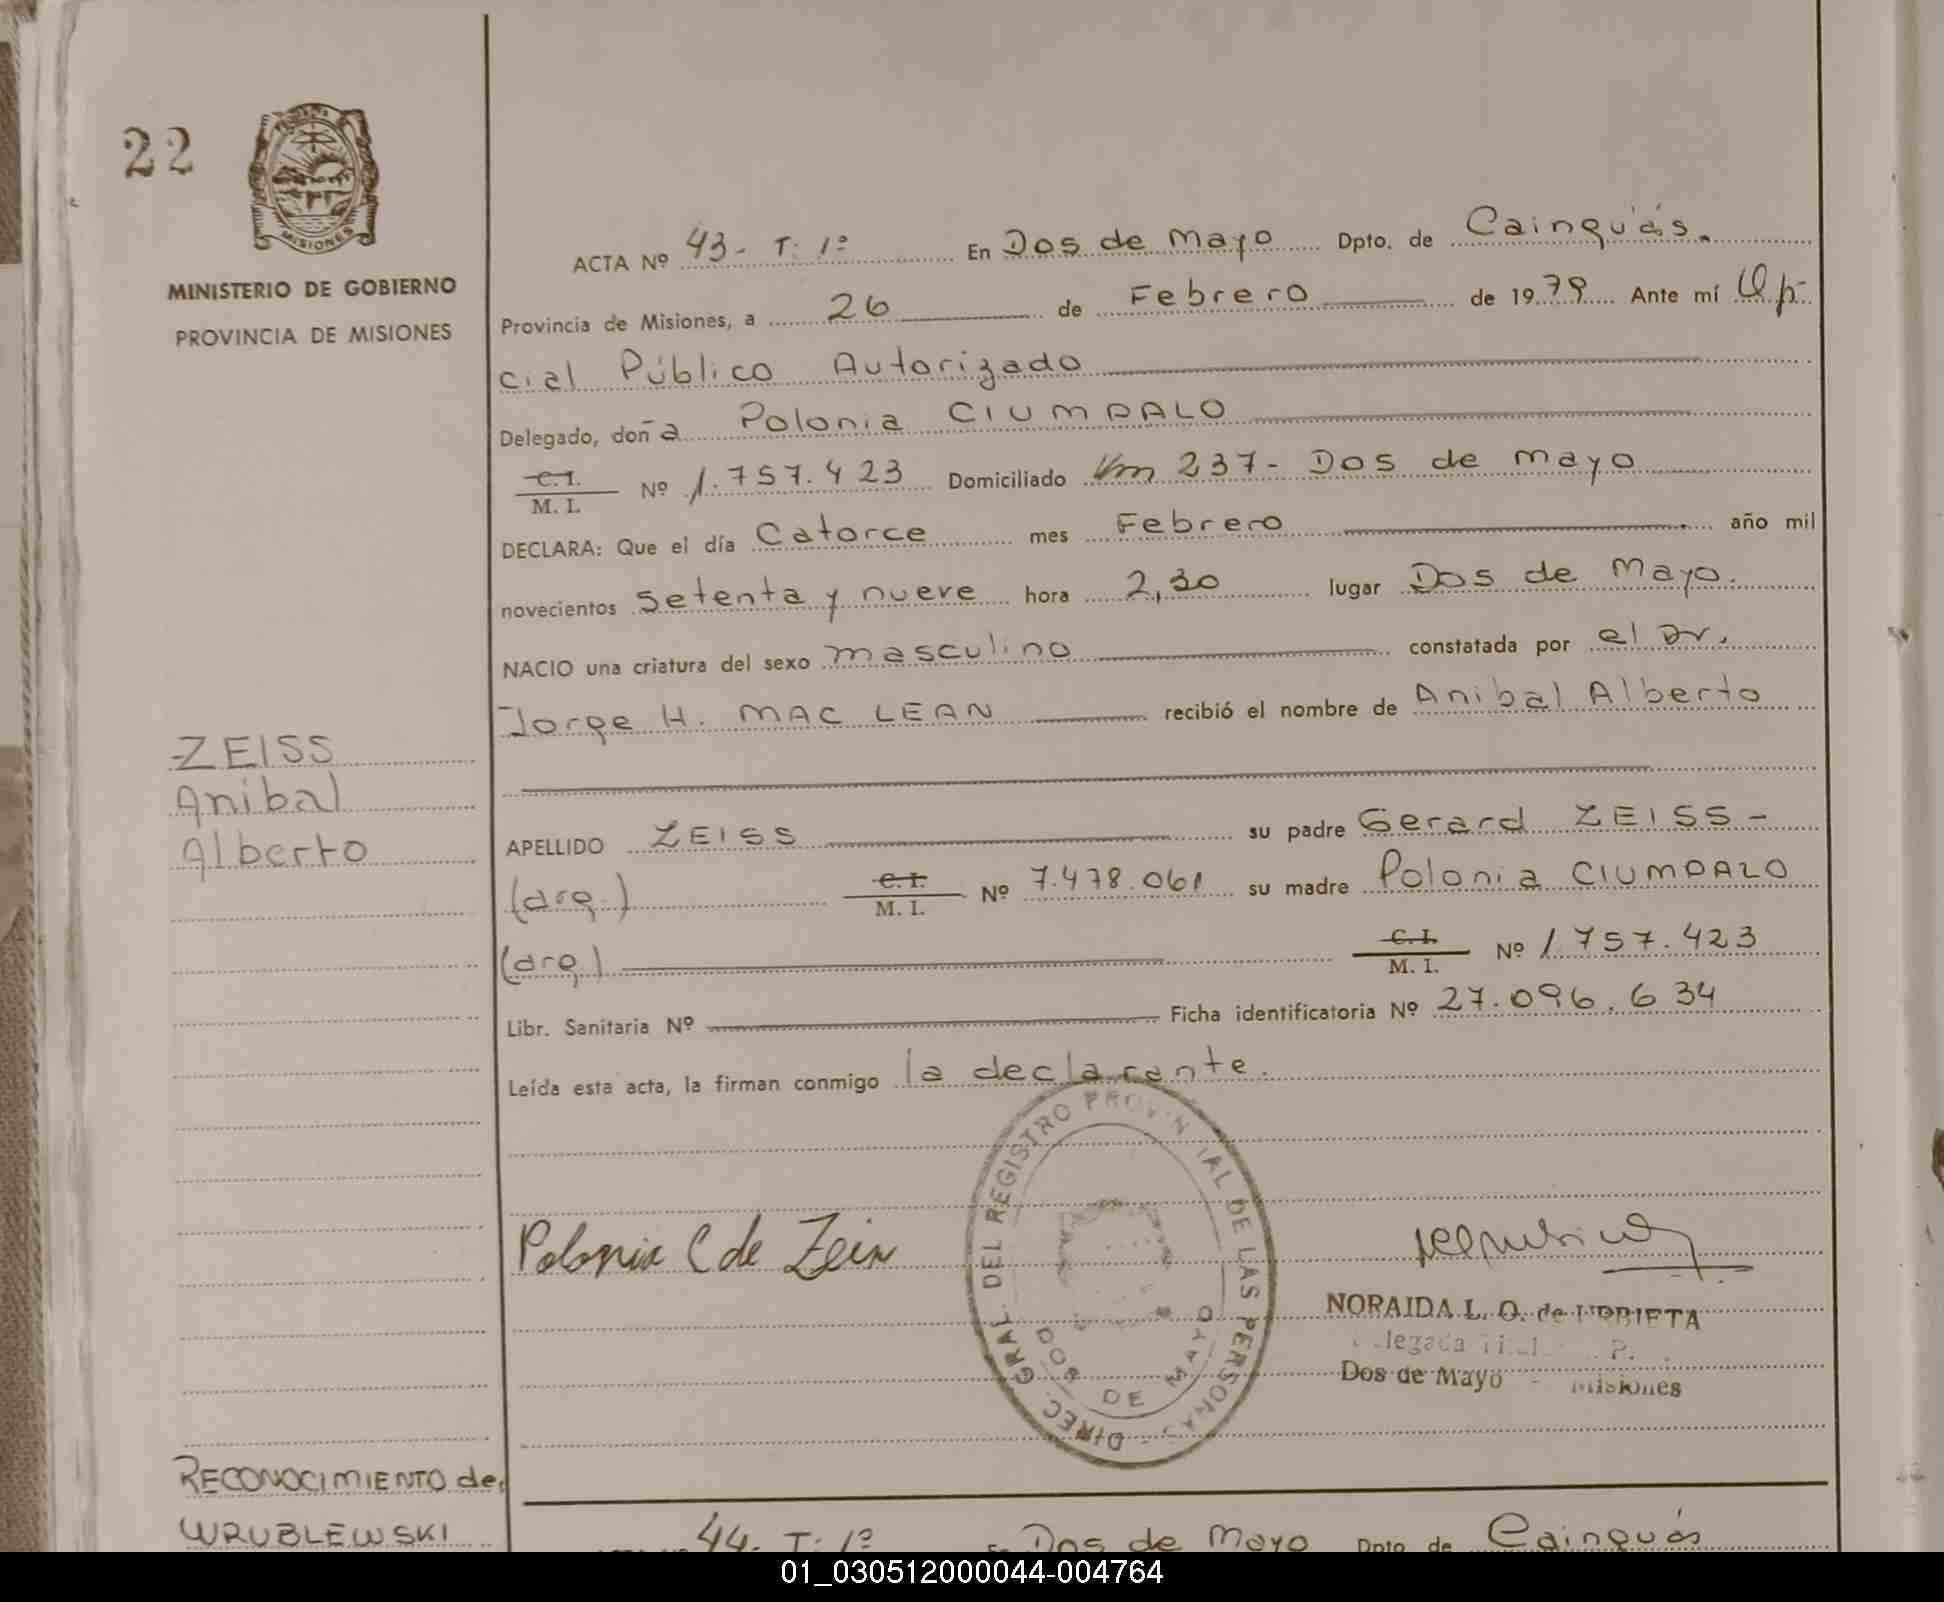 22
MISIONES
MINISTERIO DE GOBIERNO
PROVINCIA DE MISIONES
ZEISS
Anibal
Alberto
ACTA Nº 43- T: 1º En Dos de Mayo Dpto. de Cainguás.
Provincia de Misiones, a 26 de Febrero de 1979 Ante mí Ofi-
cial Público Autorizado
Delegado, doña Polonia CIUMPALO
C.I. M. I. Nº 1.757.423 Domiciliado Km 237- Dos de mayo
DECLARA: Que el día Catorce mes Febrero año mil
novecientos setenta y nueve hora 2,30 lugar Dos de Mayo.
NACIO una criatura del sexo masculino constatada por el Dr.
Jorge H. MAC LEAN recibió el nombre de Anibal Alberto
APELLIDO ZEISS su padre Gerard ZEISS-
(arg.) C. I. M. I. Nº 7.478.061 su madre Polonia CIUMPALO
(arg) C. I. M. I. Nº 1.757.423
Libr. Sanitaria Nº Ficha identificatoria Nº 27.096.634
Leída esta acta, la firman conmigo la declarante.
DIREC. GRAL. DEL REGISTRO PROVINCIAL DE LAS PERSONAS -
DOS DE MAYO
Polonia C de Zeiss
NORAIDA L. O. de URRIETA
Dos de Mayo - Misiones
RECONOCIMIENTO de
WRUBLEWSKI
44- T: 1º En Dos de Mayo Dpto de Cainguás
01_030512000044-004764